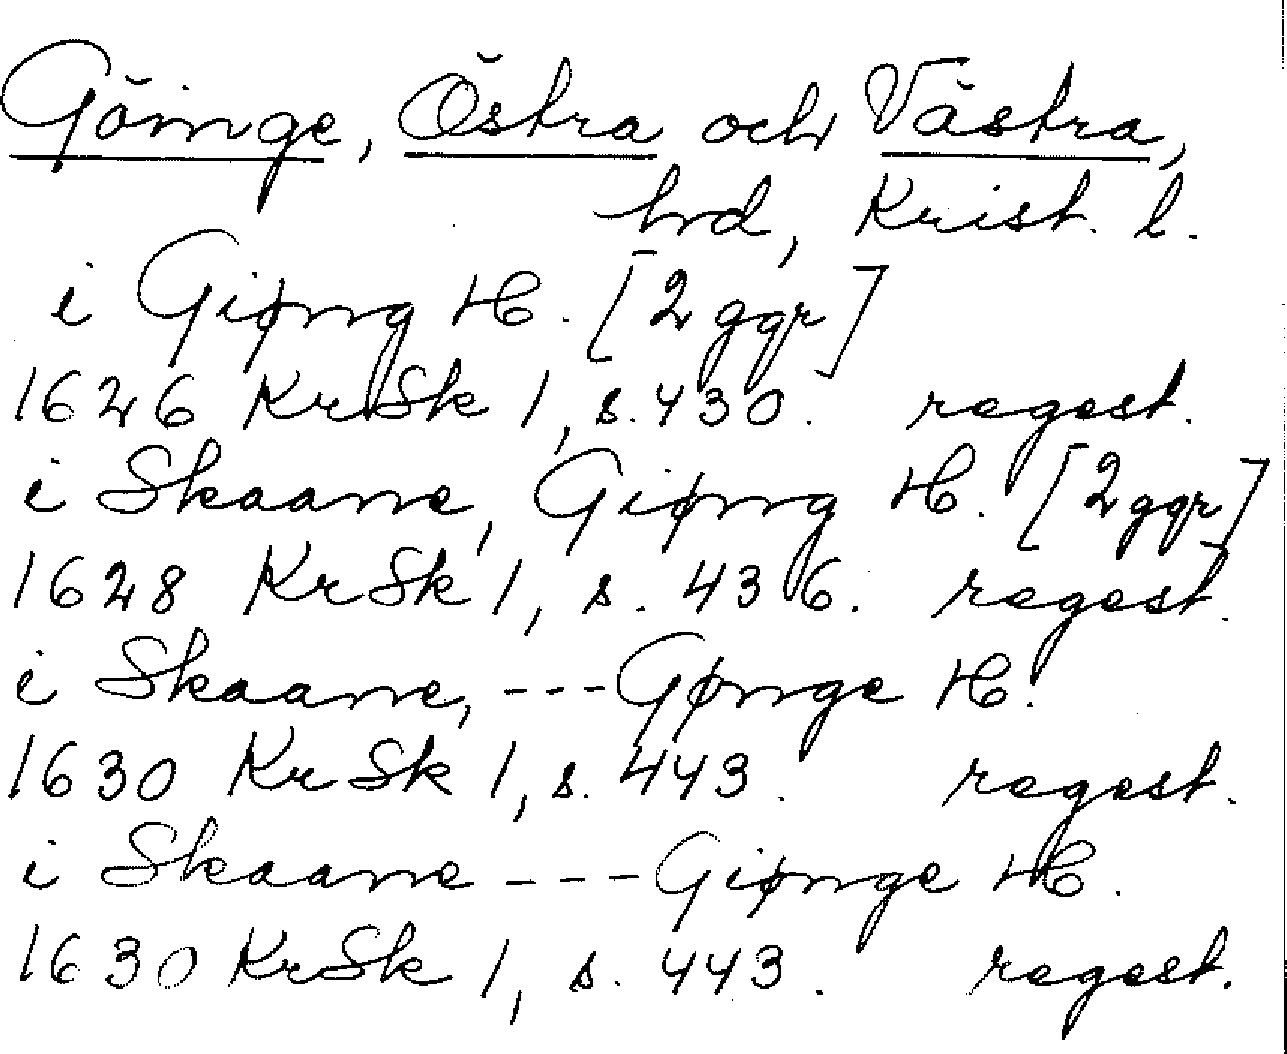 Göinge, Östra och Västra,
hrd, Krist. l.
i Giøng H. [2 ggr]
1626 KrSk 1, s. 430. regest.
i Skaane, Giøng H. [2 ggr]
1628 KrSk 1, s. 436. regest.
i Skaane, --- Gønge H.
1630 KrSk 1, s. 443. regest.
i Skaane --- Giønge H.
1630 KrSk 1, s. 443. regest.